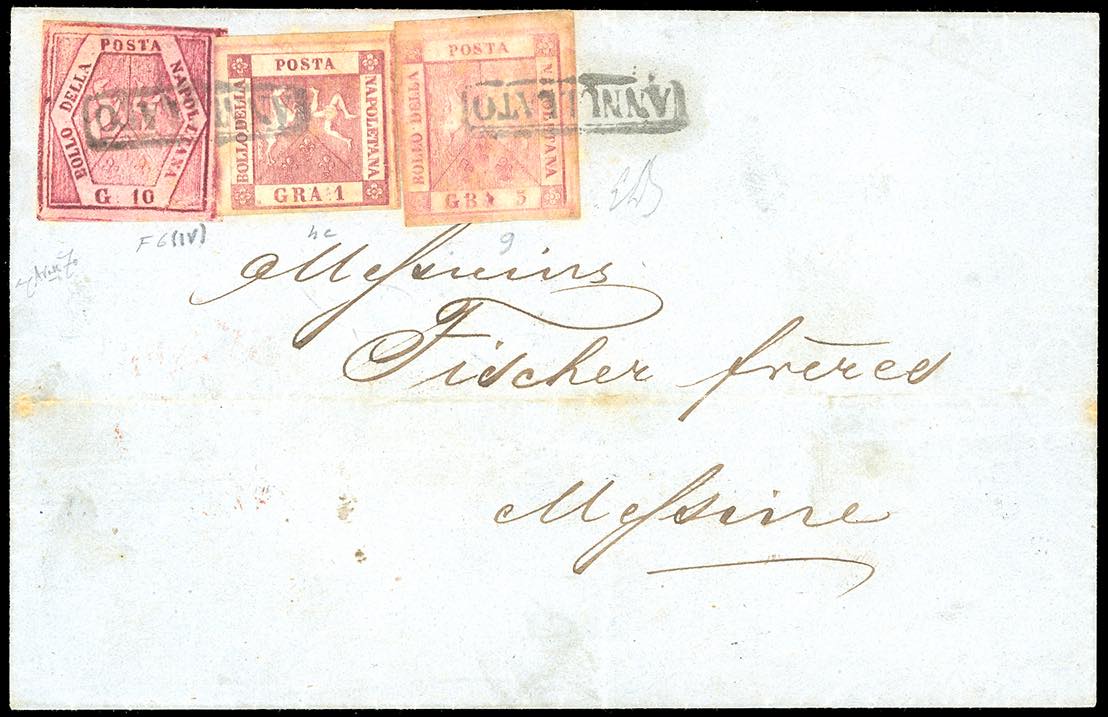 BOLLO DELLA POSTA NAPOLITANA
G 10
POSTA
BOLLO DELLA
NAPOLETANA
GRA 1
POSTA
BOLLO DELLA
NAPOLETANA
GRA 5
ANNULLATO
ANNULLATO
F6(IV)
4c
9
Messieurs
Fischer frères
Messine